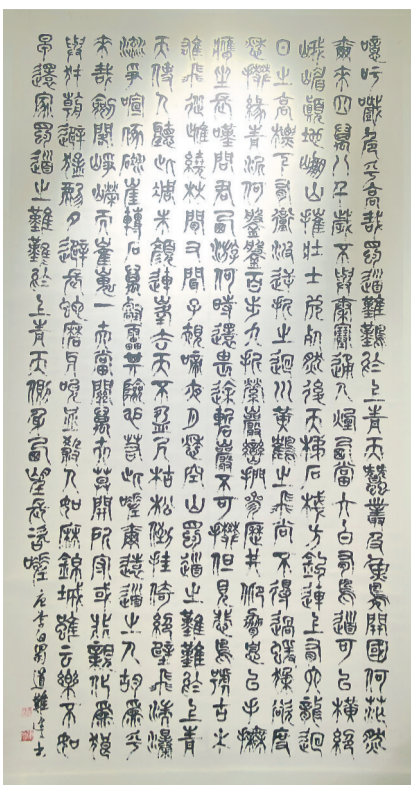 噫吁嚱危乎高哉蜀道難難於上青天蠶叢及魚鳧開國何茫然
爾來四萬八千歲不與秦塞通人煙西當太白有鳥道可以橫絕
峨嵋巔地崩山摧壯士死然後天梯石棧方鉤連上有六龍迴
日之高標下有衝波逆折之迴川黃鶴之飛尚不得過猨猱欲度
愁攀緣青泥何盤盤百步九折縈巖巒捫參歷井仰脅息以手撫
膺坐長嘆問君西游何時還畏途巉巖不可攀但見悲鳥號古木
雄飛從雌繞林間又聞子規啼夜月愁空山蜀道之難難於上青
天使人聽此凋朱顏連峯去天不盈尺枯松倒挂倚絕壁飛湍瀑
流爭喧豗砯崖轉石萬壑雷其險也若此嗟爾遠道之人胡爲乎
來哉劍閣崢嶸而崔嵬一夫當關萬夫莫開所守或匪親化爲狼
與豺朝避猛虎夕避長蛇磨牙吮血殺人如麻錦城雖云樂不如
早還家蜀道之難難於上青天側身西望長咨嗟 唐李白蜀道難